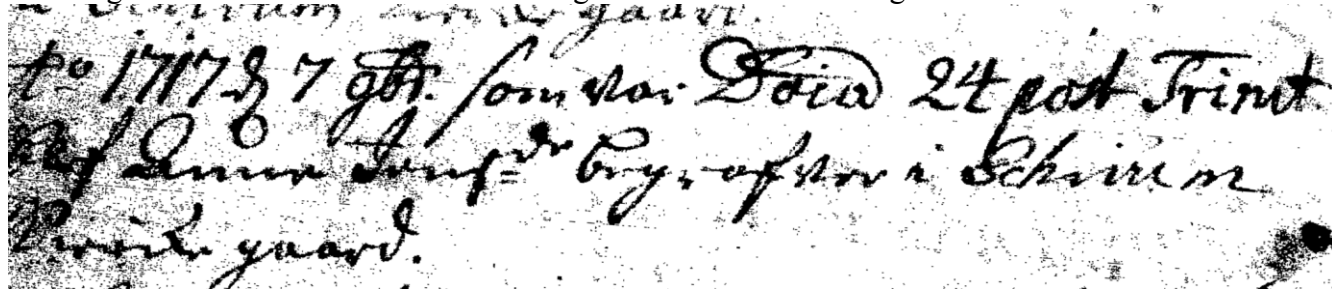 gaard.
Ao 1717 d 7 9br. som var Doica 24 post Trinit
blef Anne Jensdr begrafven i Schirim
Kircke gaard.